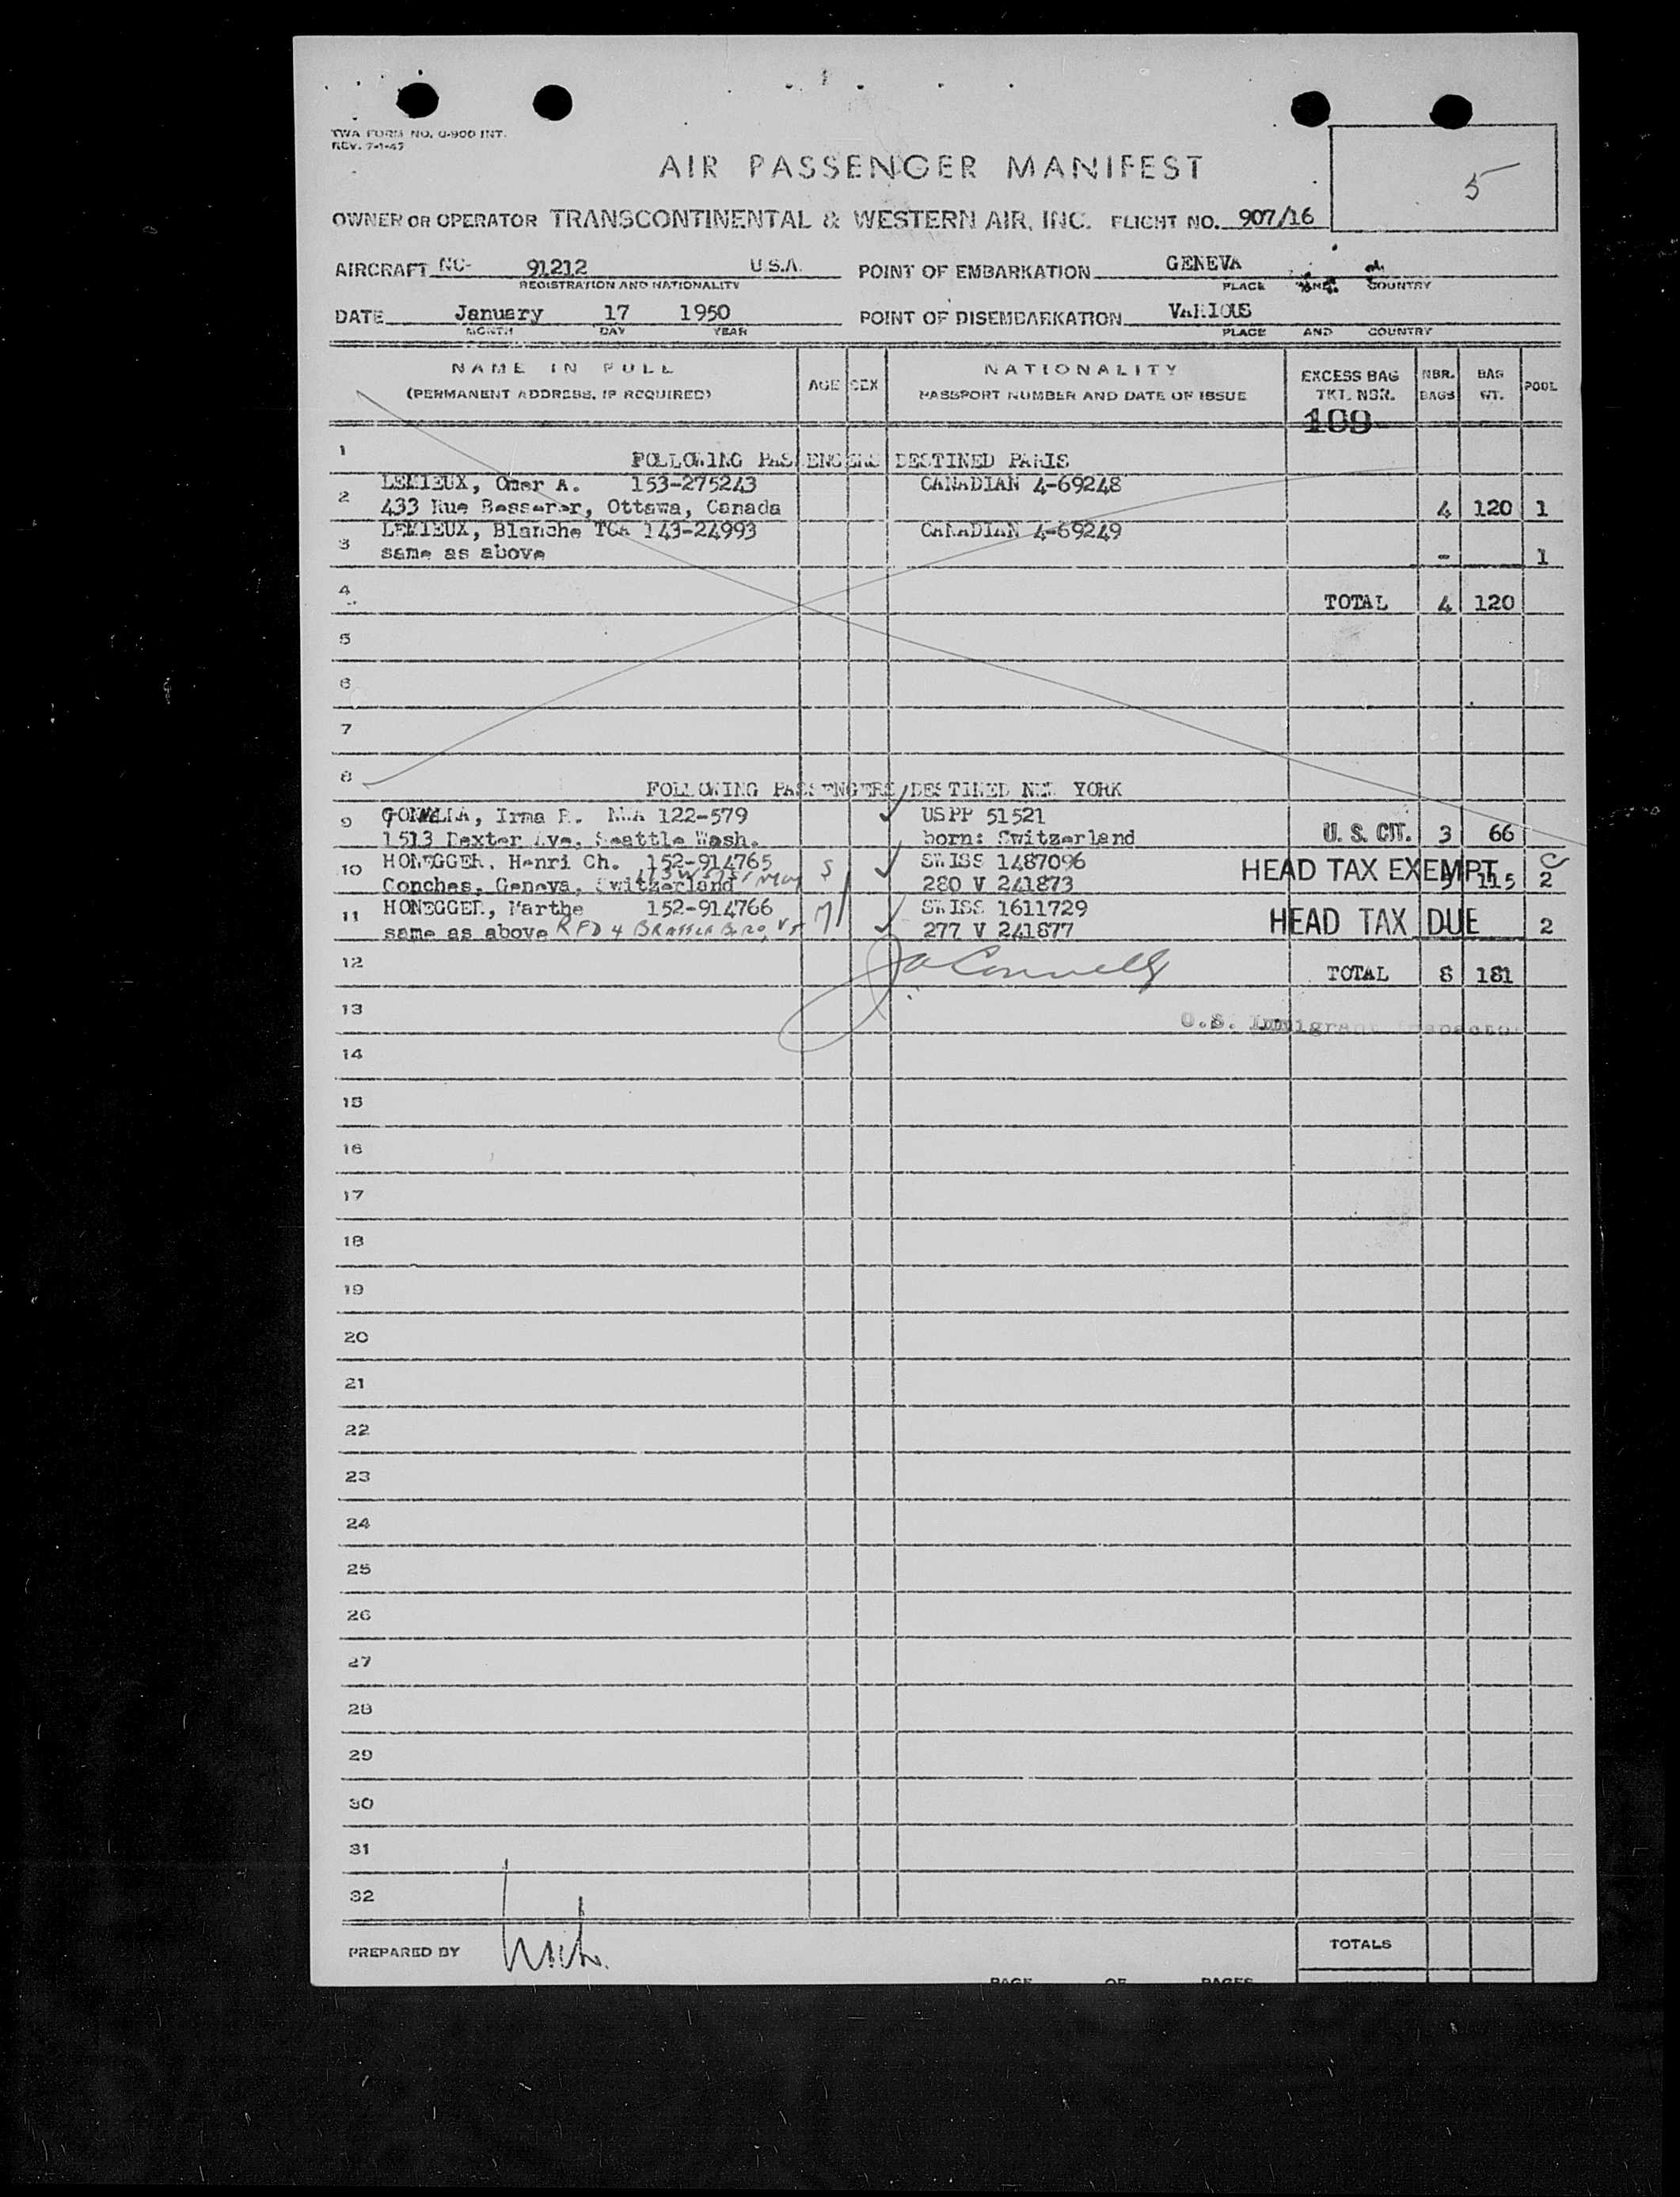 TWA FORM NO. O-900 INT.
REV. 7-1-47
AIR PASSENGER MANIFEST
5
OWNER OR OPERATOR TRANSCONTINENTAL & WESTERN AIR, INC. FLIGHT NO. 907/16
AIRCRAFT NC- 91212 U.S.A. POINT OF EMBARKATION GENEVA
REGISTRATION AND NATIONALITY PLACE AND COUNTRY
DATE January 17 1950 POINT OF DISEMBARKATION VARIOUS
MONTH DAY YEAR PLACE AND COUNTRY
NAME IN FULL AGE SEX NATIONALITY EXCESS BAG NBR. BAG POOL
(PERMANENT ADDRESS, IF REQUIRED) PASSPORT NUMBER AND DATE OF ISSUE TKT. NBR. BAGS WT.
109
1 FOLLOWING PASSENGERS DESTINED PARIS
2 LEMIEUX, Omer A. 153-275243 CANADIAN 4-69248
433 Rue Besserer, Ottawa, Canada 4 120 1
3 LEMIEUX, Blanche TCA 143-24993 CANADIAN 4-69249
same as above - 1
4 TOTAL 4 120
5
6
7
8 FOLLOWING PASSENGERS DESTINED NEW YORK
9 Irma R. NWA 122-579 USPP 51521
1513 Dexter Ave. Seattle Wash. born: Switzerland U. S. CIT. 3 66
10 HONEGGER, Henri Ch. 152-914765 S SWISS 1487096 HEAD TAX EXEMPT
Conches, Geneva, Switzerland 280 V 241873 5 115 2
11 HONEGGER, Marthe 152-914766 M SWISS 1611729 HEAD TAX DUE
same as above RFD 4 Brattleboro, Vt 277 V 241877 2
12 J. O'Connelly TOTAL 8 181
13 U.S. Immigrant Inspector
14
15
16
17
18
19
20
21
22
23
24
25
26
27
28
29
30
31
32
PREPARED BY TOTALS
PAGE OF PAGES